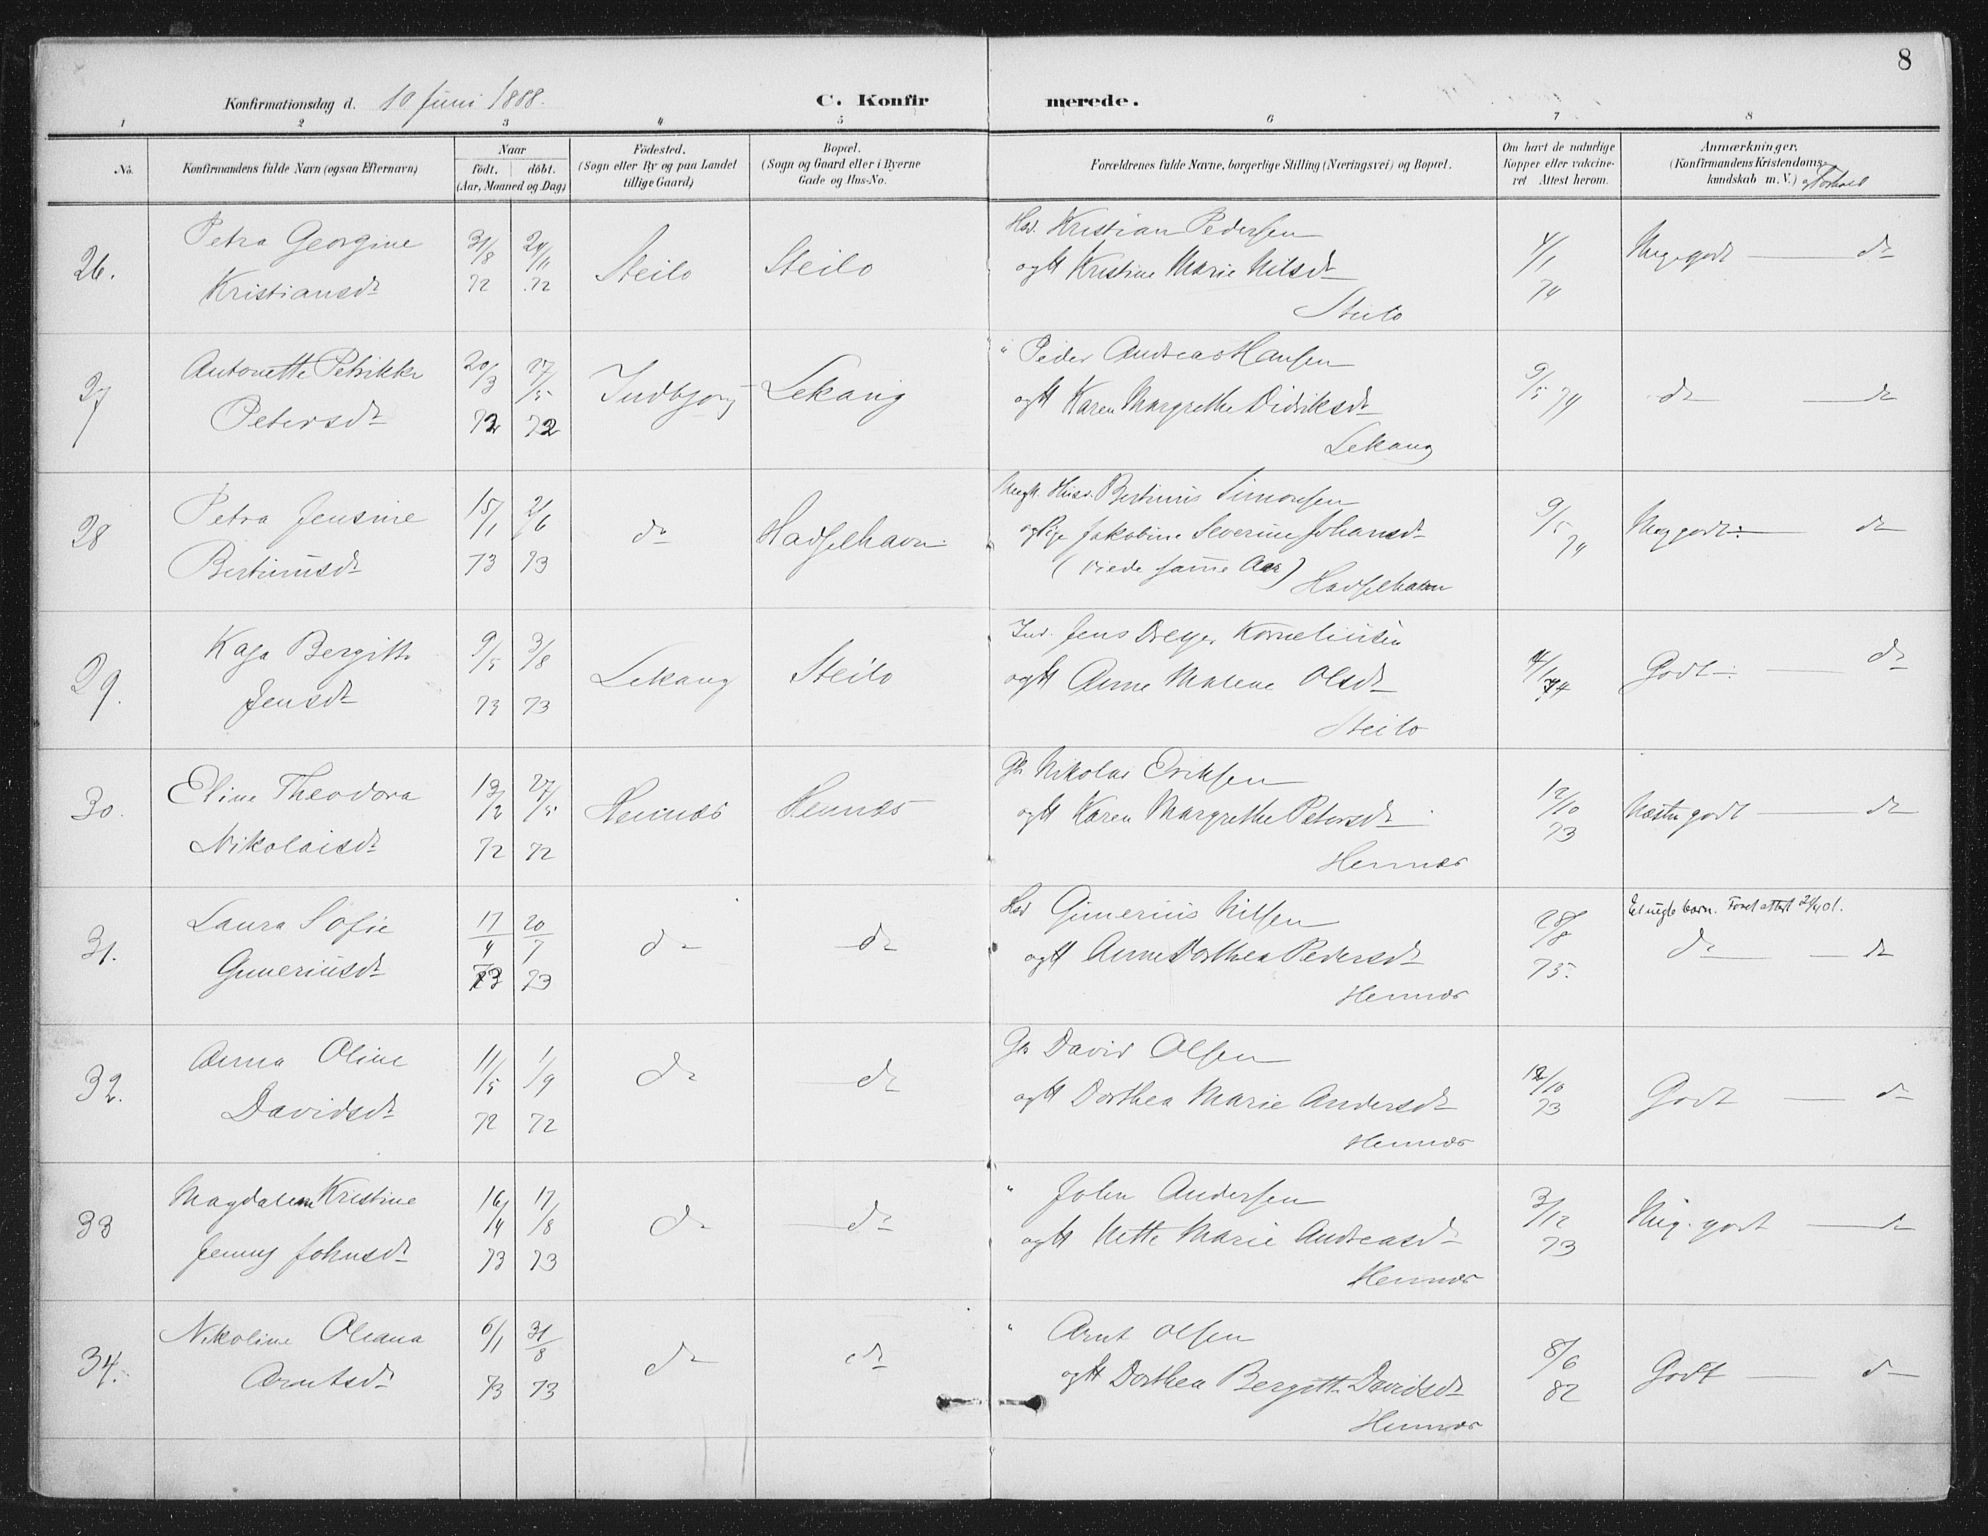 8
Konfirmationsdag d. 10 Juni 1888.
C. Konfirmerede.
1 2 3 4 5 6 7 8
No.
Konfirmandens fulde Navn (ogsaa Efternavn)
Naar
født. døbt.
(Aar, Maaned og Dag)
Fødested.
(Sogn eller By og paa Landet
tillige Gaard)
Bopæl.
(Sogn og Gaard eller i Byerne
Gade og Hus-No.
Forældrenes fulde Navne, borgerlige Stilling (Næringsvei) og Bopæl.
Om havt de naturlige
Kopper eller vakcine-
ret Attest herom.
Anmærkninger.
(Konfirmandens Kristendoms-
kundskab m. V.) og Forhold
26.
Petra Georgine
Kristiansdt
31/8 72
24/11 72
Steilo
Steilo
Hsd. Kristian Pedersen
og H Kristine Marie Nilsdt
Steilo
4/1 74
Meget godt — do
27
Antonette Petrikke
Petersdt
20/3 72
27/5 72
Indbjorg
Lekang
" Peder Andreas Hansen
og H Karen Margrethe Didriksdt
Lekang
9/5 74
do — do
28
Petra Jensine
Bertinusdt
15/1 73
21/6 73
do
Hadselhavn
Ungk. Husr. Bertinus Simonsen
og Pige Jakobine Severine Johansdt
(viede samme Aar) Hadselhavn
9/5 74
Meg godt: — do
29.
Kaja Bergitte
Jensdt
9/5 73
3/8 73
Lekang
Steilo
Ind. Jens Dreyer Korneliusen
og H Anne Malene Olsdt
Steilo
4/1 74
Godt. — do
30.
Eline Theodora
Nikolaisdt
13/2 72
27/5 72
Hennes
Hennes
Gb Nikolai Eriksen
og H Karen Margrethe Petersdt
Hennes
12/10 73
Næsten godt — do
31.
Laura Sofie
Guneriusdt
17/4 73
20/7 73
do
do
Hsd Gunerius Nilsen
og H Anne Dorthea Pedersdt
Hennes
28/8 75.
Et uegte barn.
do — do
32.
Anna Oline
Davidsdt
11/5 72
1/9 72
do
do
Gb David Olsen
og H Dorthea Marie Andersdt
Hennes
12/10 73
Godt — do
33
Magdalena Kristine
Jenny Johnsdt
16/4 73
17/8 73
do
do
" John Andersen
og H Mette Marie Andreasdt
Hennes
3/12 73
Meg. godt — do
34.
Nikoline Oleana
Arntsdt
6/1 73
31/8 73
do
do
" Arnt Olsen
og H Dorthea Bergitte Davidsdt
Hennes
8/6 82
Godt — do